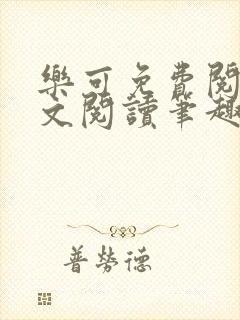 樂可免費閱
文閱讀筆趣
普勞德